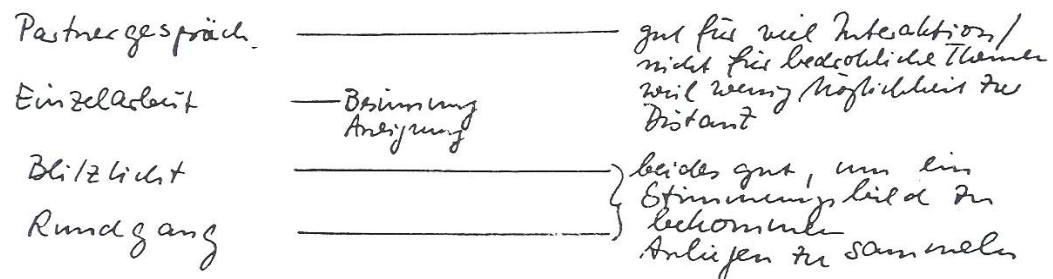 Partnergespräch.
gut für viel Interaktion/
nicht für bedrohliche Themen
weil wenig Möglichkeit zur
Distanz
Einzelarbeit
Besinnung
Aneignung
Blitzlicht
Rundgang
beides gut, um ein
Stimmungsbild zu
bekommen
Anliegen zu sammeln